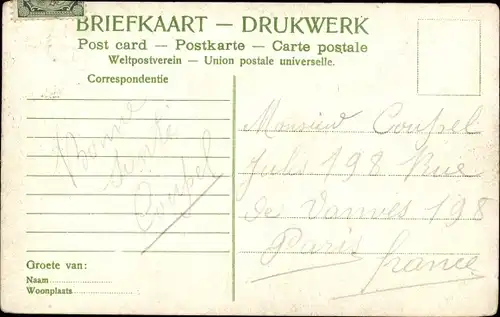 BRIEFKAART — DRUKWERK
Post card — Postkarte — Carte postale
Weltpostverein — Union postale universelle.
Correspondentie
Bonne
Santé
Coupel
Monsieur Coupel
Jules 198 Rue
de Vanves 198
Paris
france
Groete van:
Naam
Woonplaats